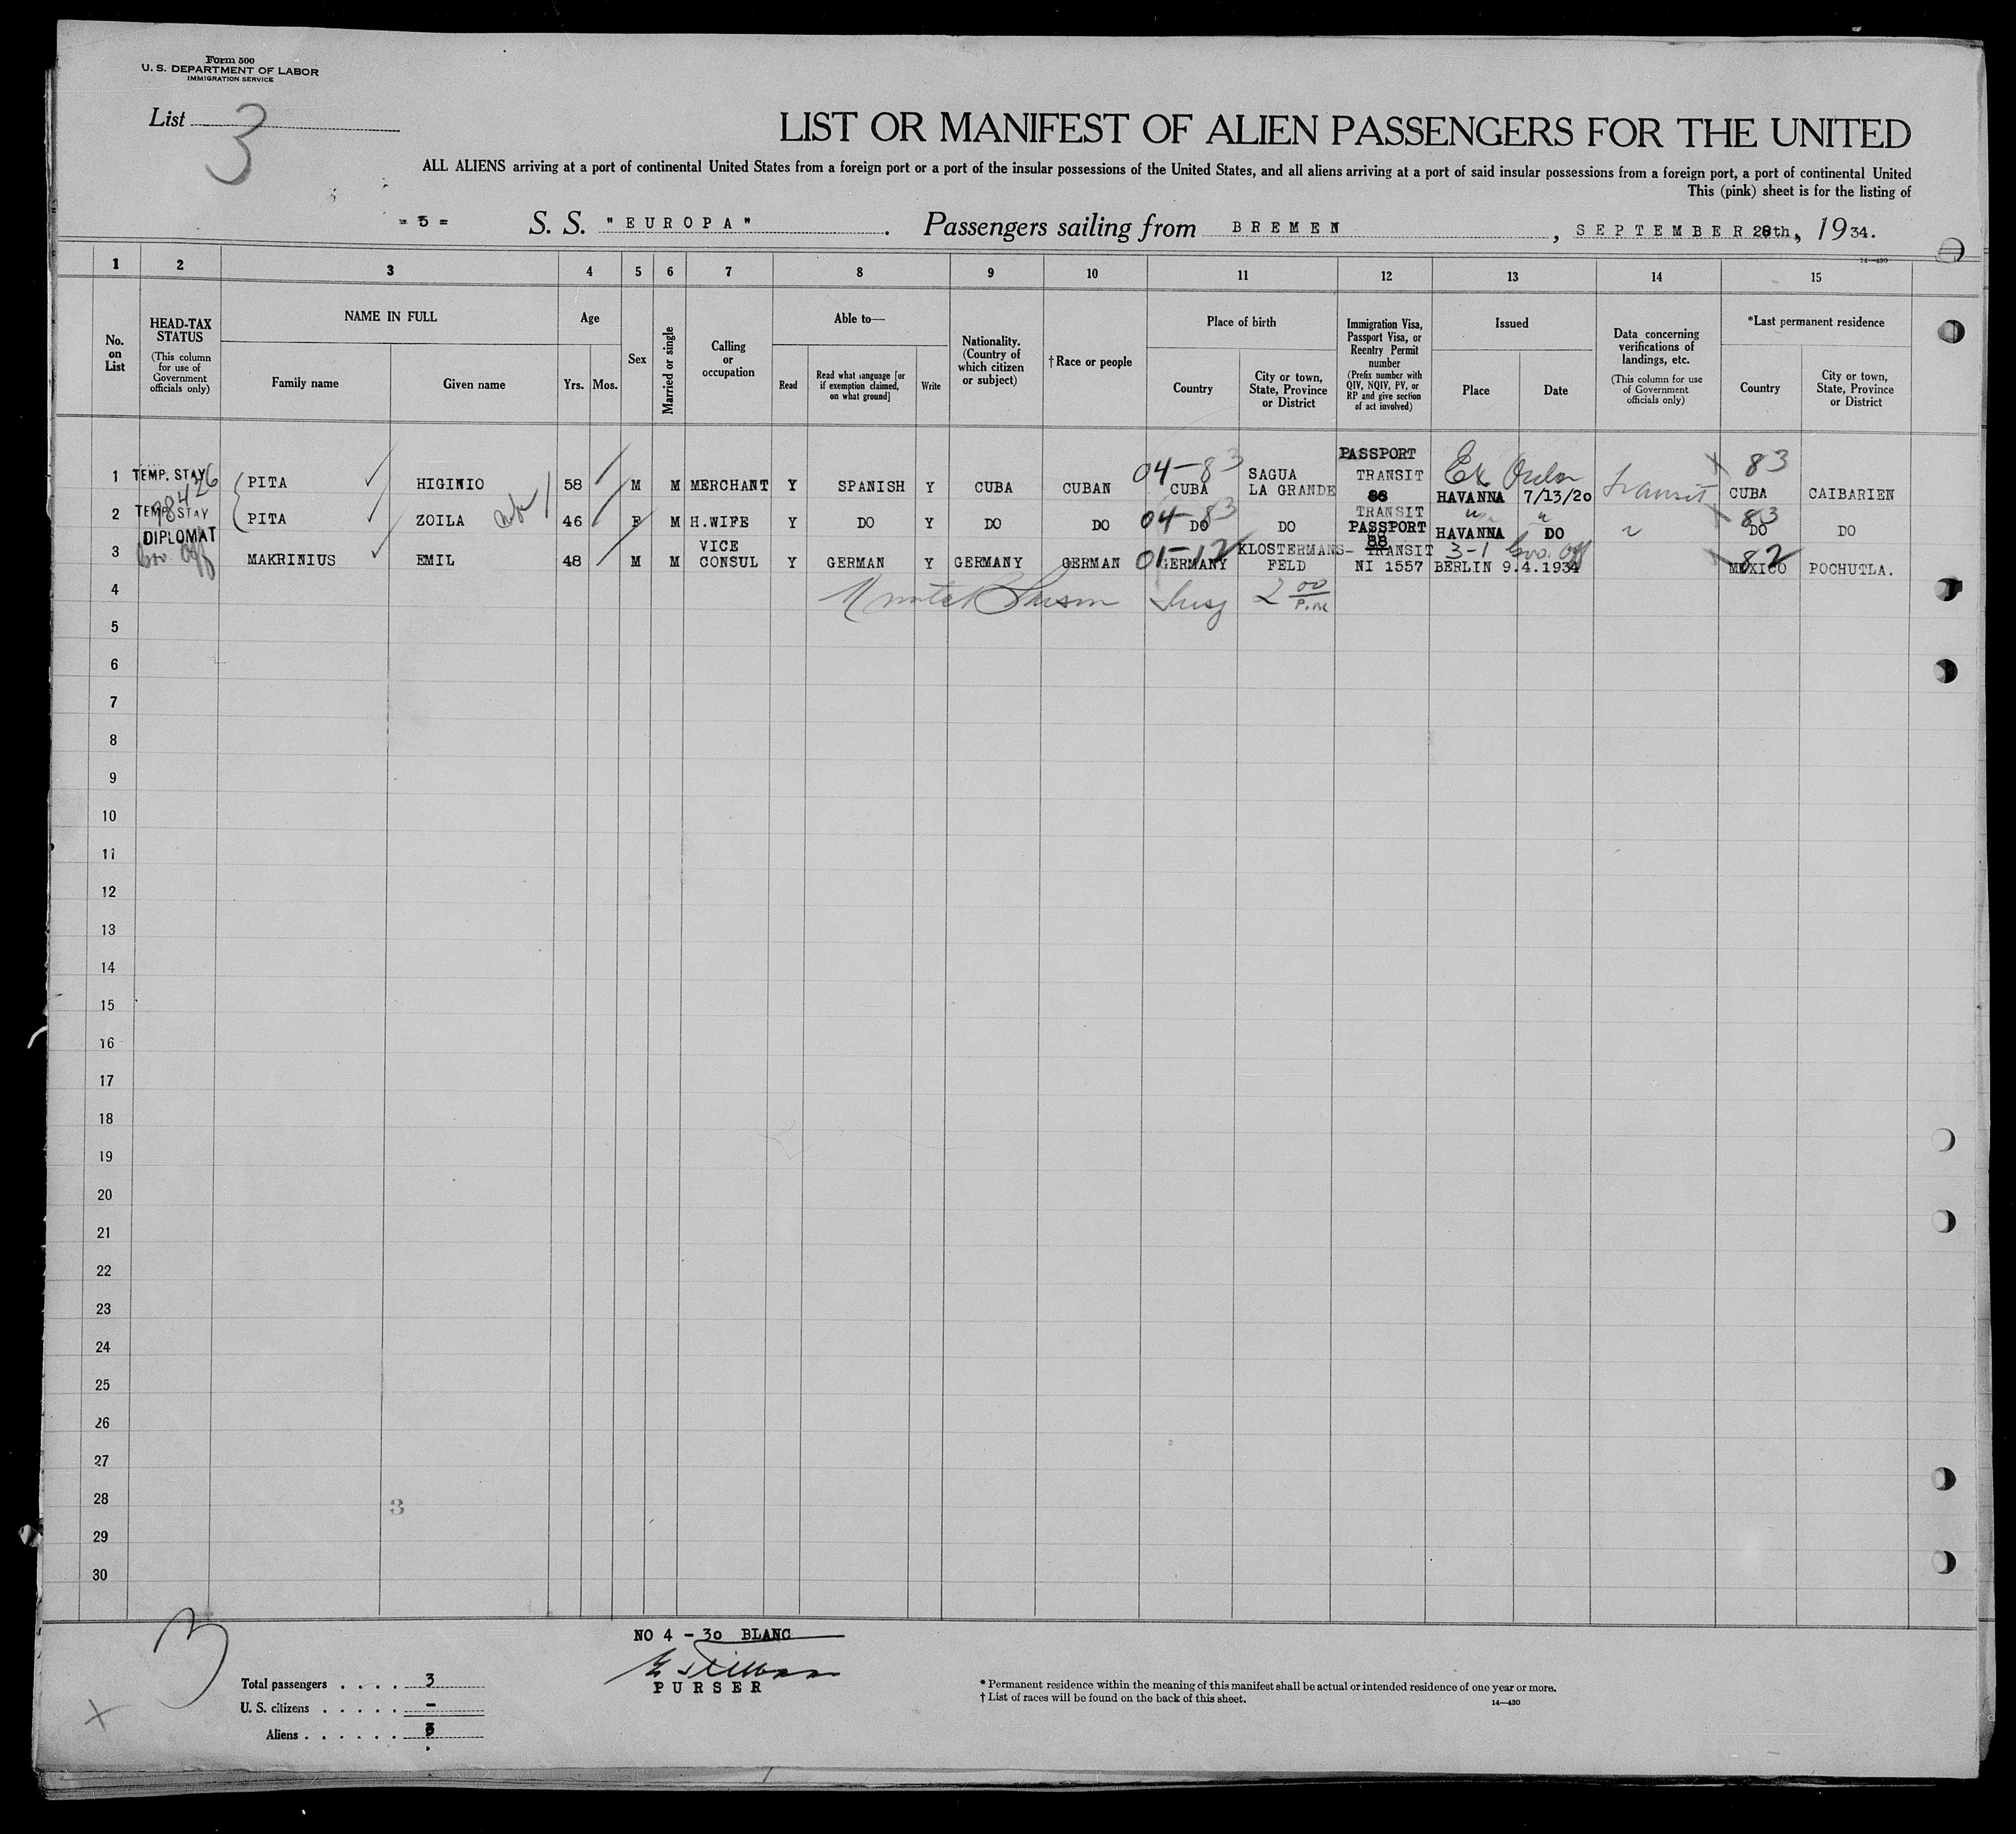 Form 500
U. S. DEPARTMENT OF LABOR
IMMIGRATION SERVICE
List 3
LIST OR MANIFEST OF ALIEN PASSENGERS FOR THE UNITED
ALL ALIENS arriving at a port of continental United States from a foreign port or a port of the insular possessions of the United States, and all aliens arriving at a port of said insular possessions from a foreign port, a port of continental United
This (pink) sheet is for the listing of
S. S. "EUROPA". Passengers sailing from BREMEN, SEPTEMBER 28th, 1934.
14—430
1 2 3 4 5 6 7 8 9 10 11 12 13 14 15
No. on List
HEAD-TAX STATUS
(This column for use of Government officials only)
NAME IN FULL
Family name Given name
Age
Yrs. Mos.
Sex
Married or single
Calling or occupation
Able to—
Read
Read what language [or if exemption claimed, on what ground]
Write
Nationality. (Country of which citizen or subject)
†Race or people
Place of birth
Country
City or town, State, Province or District
Immigration Visa, Passport Visa, or Reentry Permit number
(Prefix number with QIV, NQIV, PV, or RP and give section of act involved)
Issued
Place Date
Data concerning verifications of landings, etc.
(This column for use of Government officials only)
*Last permanent residence
Country
City or town, State, Province or District
PASSPORT
04-83 83
1 TEMP. STAY PITA HIGINIO 58 M M MERCHANT Y SPANISH Y CUBA CUBAN CUBA SAGUA LA GRANDE TRANSIT HAVANNA 7/13/20 Transit CUBA CAIBARIEN
TRANSIT
2 TEMP. STAY PITA ZOILA 46 F M H.WIFE Y DO Y DO DO 04-83 DO DO PASSPORT 88 HAVANNA DO 83 DO DO
DIPLOMAT
Gov. Off
3 MAKRINIUS EMIL 48 M M VICE CONSUL Y GERMAN Y GERMANY GERMAN 01-12 GERMANY KLOSTERMANS-FELD TRANSIT NI 1557 3-1 Gov. Off BERLIN 9.4.1934 82 MEXICO POCHUTLA.
4 2 00 P.M
5
6
7
8
9
10
11
12
13
14
15
16
17
18
19
20
21
22
23
24
25
26
27
28
3
29
30
3
NO 4 - 30 BLANC
PURSER
Total passengers . . . . 3
U. S. citizens . . . . . -
Aliens . . . . . . 3
* Permanent residence within the meaning of this manifest shall be actual or intended residence of one year or more.
† List of races will be found on the back of this sheet.
14—430